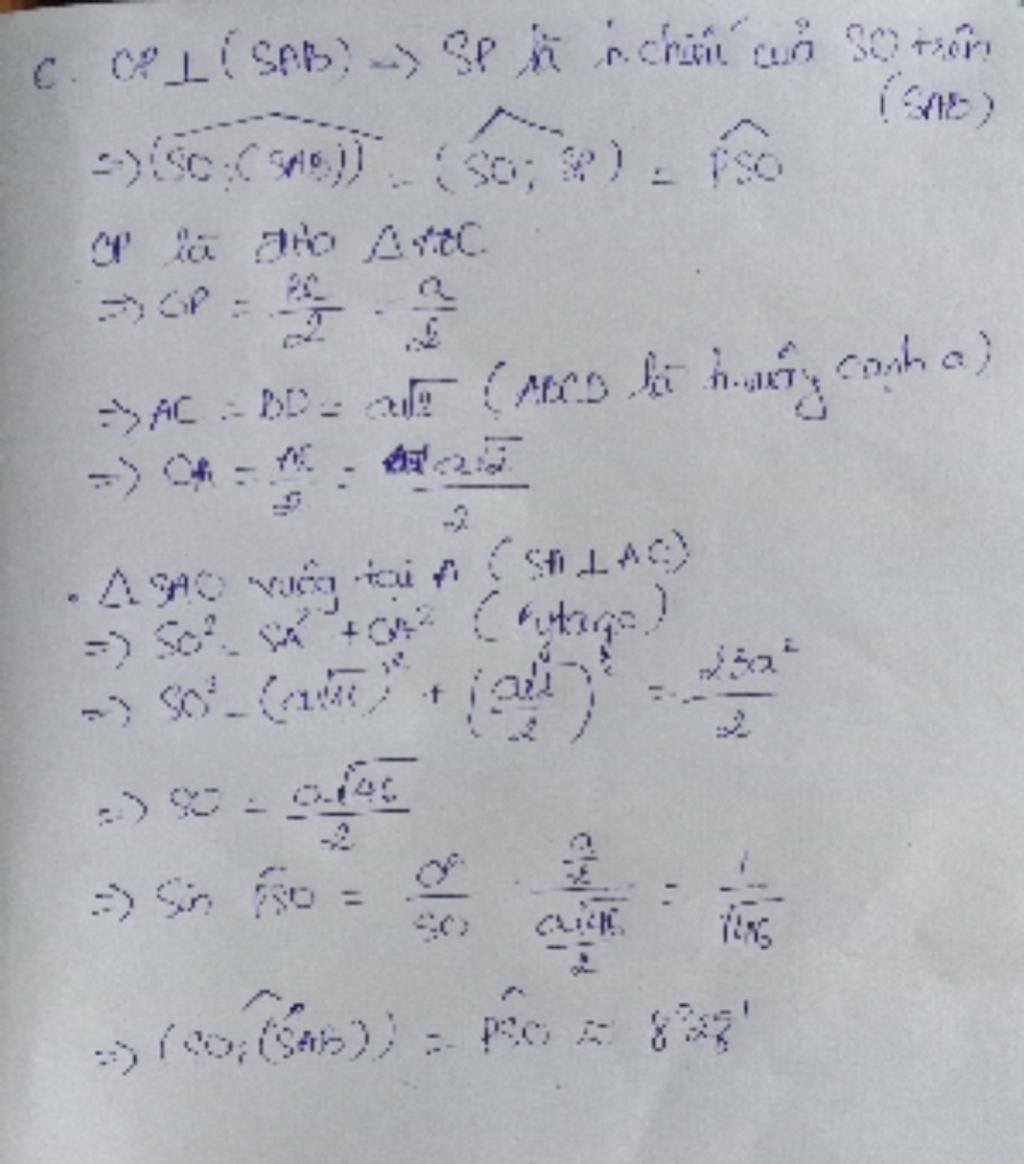 c. OP ⊥ (SAB) => SP là h chiếu của SO trên
(SAB)
=> (SO; (SAB)) = (SO; SP) = PSO
OP là ĐTB △ ABC
=> OP = BC/2 = a/2
=> AC = BD = a√2 (ABCD là h.vuông cạnh a)
=> OA = AC/2 = a√2/2
. △ SAO vuông tại A (SA ⊥ AC)
=> SO² = SA² + OA² (Pytago)
=> SO² = (a√11)² + (a√2/2)² = 23a²/2
=> SO = a√46/2
=> Sin PSO = OP/SO = (a/2)/(a√46/2) = 1/√46
=> (SO; (SAB)) = PSO ≈ 8°28'